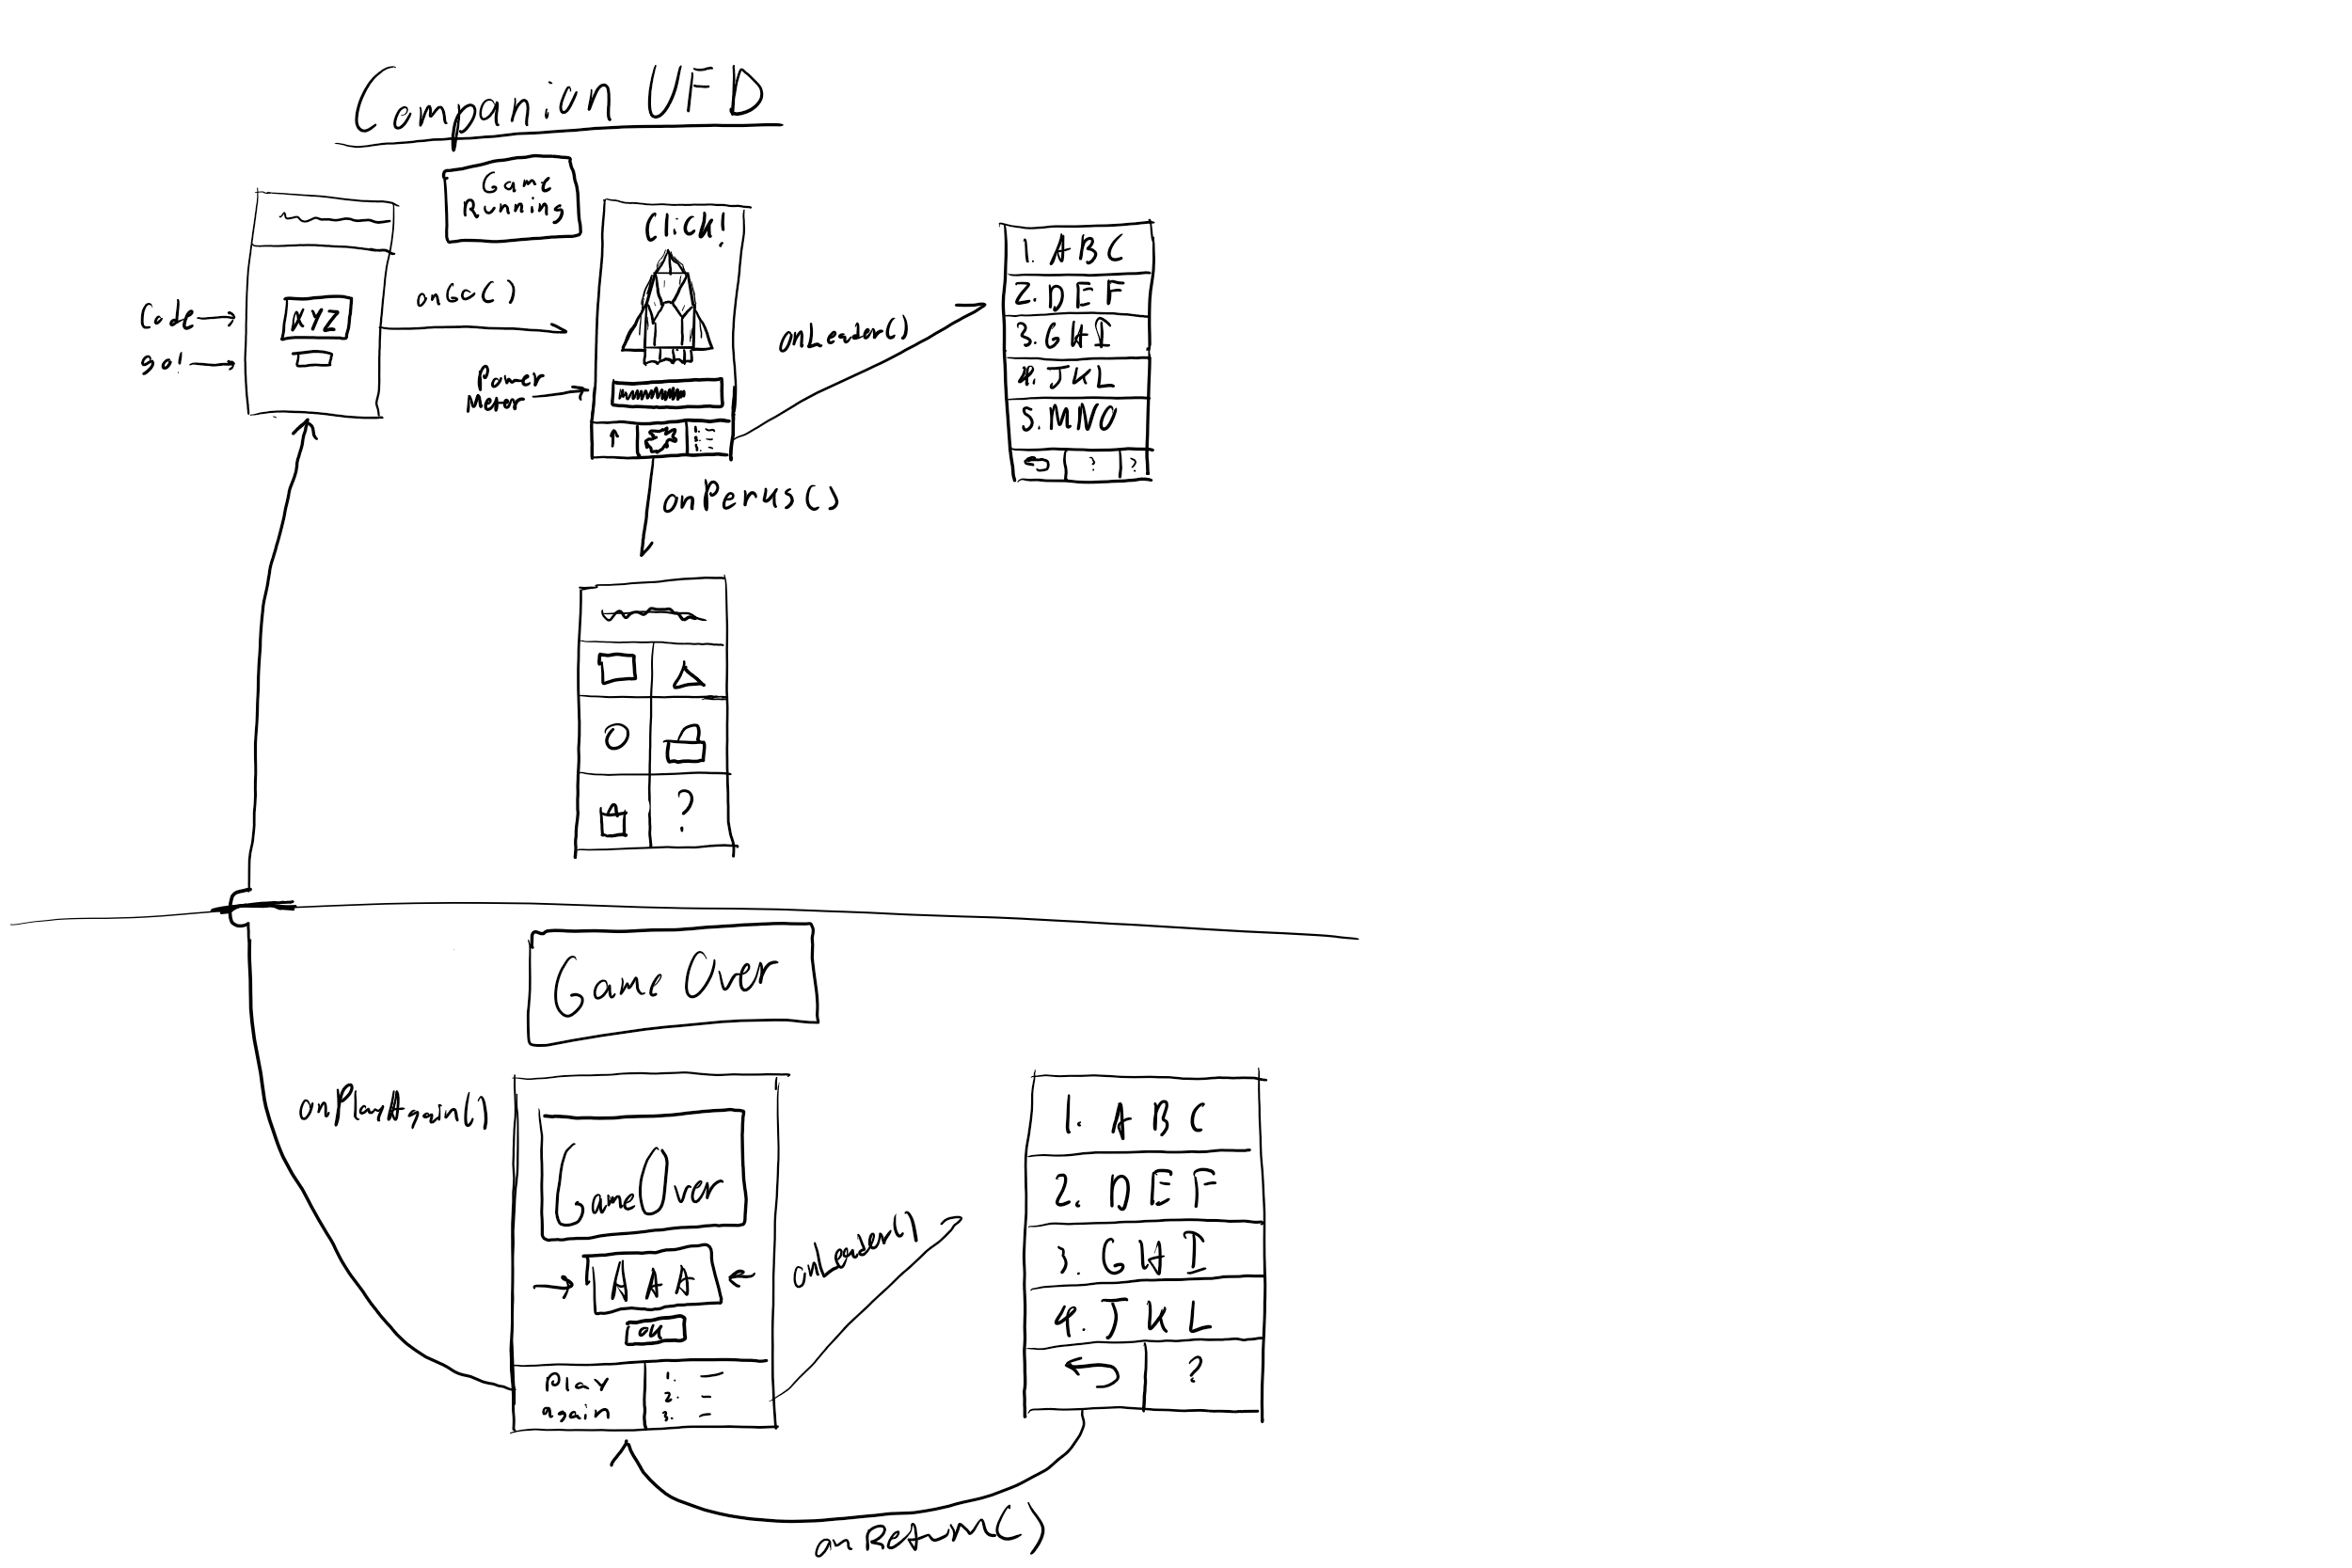 Companion UFD
Game
Running
Code
go!
XYZ
onGo()
Click!
Power
Meter
1.
2.
3.
onLeader()
1. ABC
2. DEF
3. GHI
4. JKL
5. MNO
? ?
onPerks()
?
Game Over
onPlayAgain()
Game Over
AAA
OK
Play
again
1.
2.
3.
onLeader()
1. ABC
2. DEF
3. GHI
4. JKL
?
onReturn()